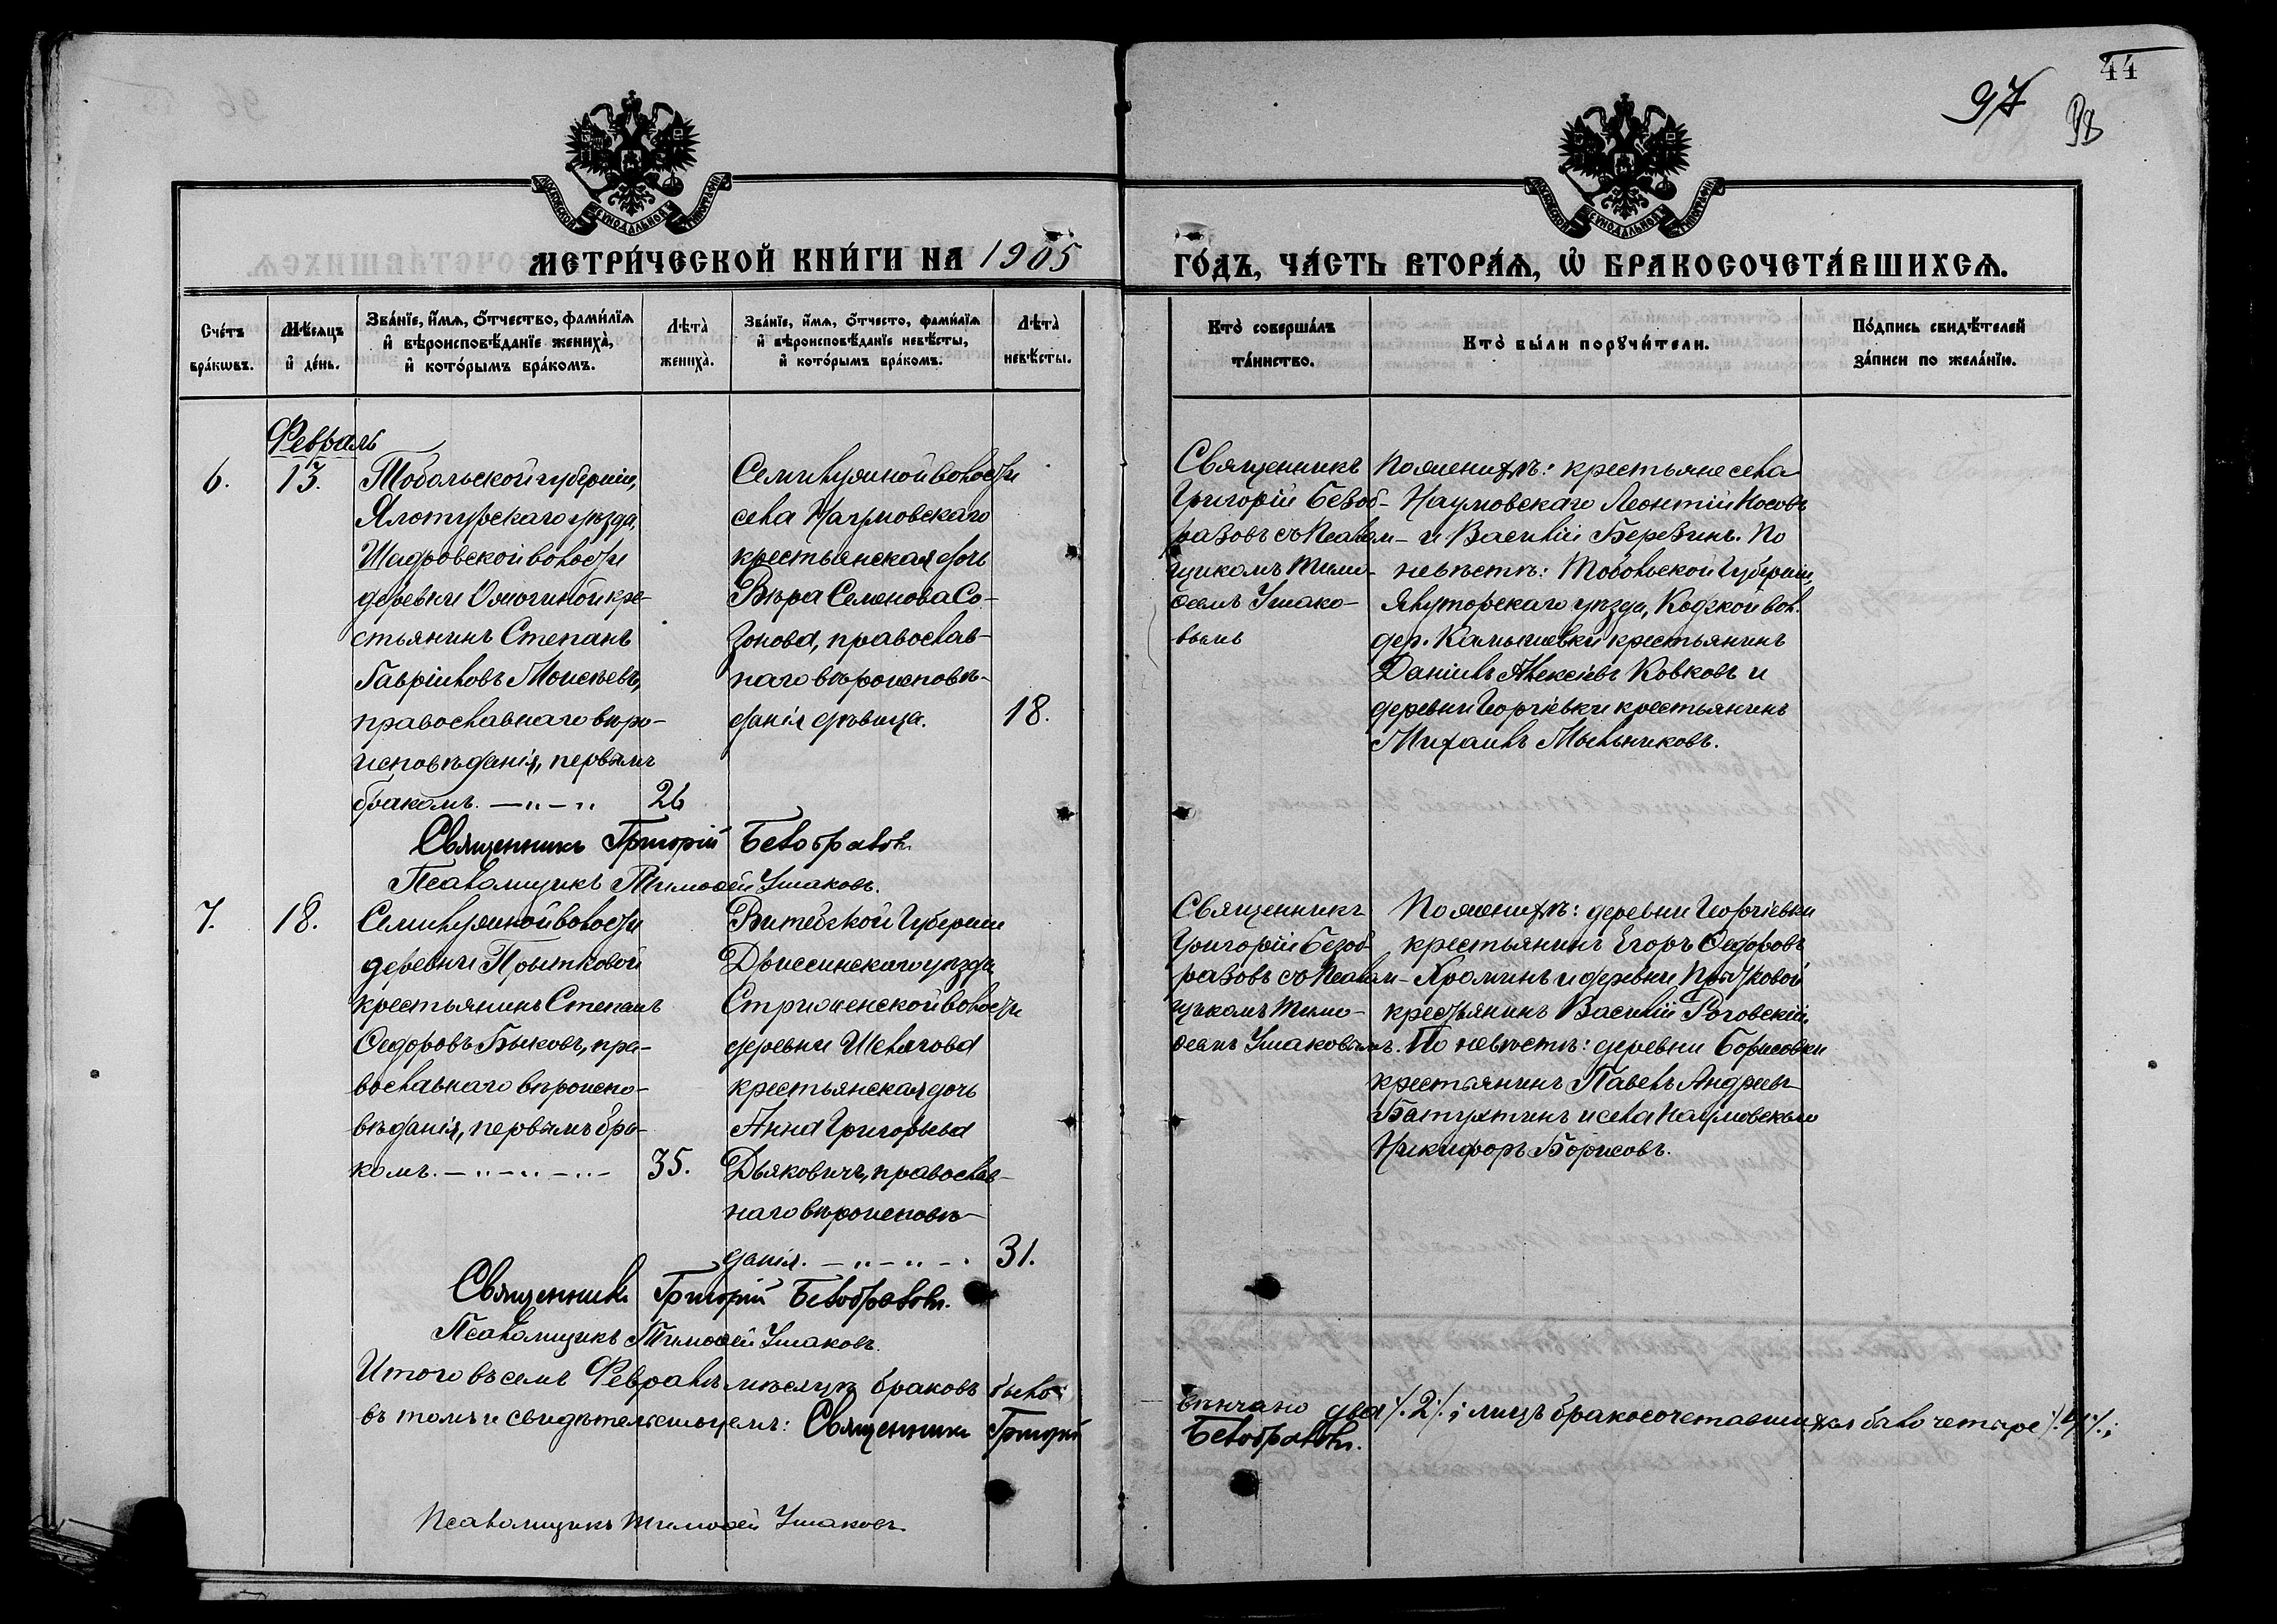 44
97
98
МОСКОВСКОЙ СѴНОДАЛЬНОЙ ТИПОГРАФІИ
МОСКОВСКОЙ СѴНОДАЛЬНОЙ ТИПОГРАФІИ
МЕТРИ́ЧЕСКОЙ КНИ́ГИ НА 1905
ГО́ДЪ, ЧА́СТЬ ВТОРА́Ѧ, Ѡ БРАКОСОЧЕТА́ВШИХСѦ.
Сче́тъ
бра́кѡвъ.
Мѣ́сяцъ
и҆ де́нь.
Зва́нїе, и҆́мѧ, ѻ҆́тчество, фами́лїѧ
и҆ вѣроисповѣ́данїе жениха̀,
и҆ кото́рымъ бра́комъ.
Лѣта̀
жениха̀.
Зва́нїе, и҆́мѧ, ѻ҆́тчесто, фами́лїѧ
и҆ вѣроисповѣ́данїе невѣ́сты,
и҆ кото́рымъ бра́комъ.
Лѣта̀
невѣ́сты.
Кто̀ соверша́лъ
та́инство.
Кто̀ бы́ли порꙋчи́тели.
По́дпись свидѣ́телей
за́писи по жела́нїю.
Февраль
6.
13.
Тобольской губерніи,
Ялотурскаго уѣзда,
Шатровской волости
деревни кре-
стьянинъ Степанъ
Гавріиловъ Моисѣевъ,
православнаго вѣро-
исповѣданія, первымъ
бракомъ. — „ — „
26
Семилужной волости
села Наумовскаго
крестьянская дочь
Вѣра Семенова Со-
зонова, православ-
наго вѣроисповѣ-
данія дѣвица.
18.
Священникъ
Григорій Безоб-
разовъ съ Псалом-
щикомъ Тимо-
ѳеемъ Ушако-
вымъ
По женихѣ: крестьяне села
Наумовскаго Леонтій Носовъ
и Василій Березинъ. По
невѣстѣ: Тобольской Губерніи,
Ялуторскаго уѣзда, вол.
дер. Камышевки крестьянинъ
Даніилъ Алексѣевъ Ковковъ и
деревни Георгіевки крестьянинъ
Михаилъ Мыльниковъ.
Священникъ Григорій Безобразовъ.
Псаломщикъ Тимоѳей Ушаковъ.
7.
18.
Семилужной волости
деревни Прытковой
крестьянинъ Степанъ
Ѳедоровъ Быковъ, пра-
вославнаго вѣроиспо-
вѣданія, первымъ бра-
комъ. — „ — „ — „ —
35.
Витебской Губерніи
Дриссинскаго уѣзда
Стрижевской волости
деревни Шелягова
крестьянская дочь
Анна Григорьева
Дьяковичъ, православ-
наго вѣроисповѣ-
данія. — „ — „ — „
31.
Священникъ
Григорій Безоб-
разовъ съ Псалом-
щикомъ Тимо-
ѳеемъ Ушаковымъ.
По женихѣ: деревни Георгіевки
крестьянинъ Егоръ Ѳедоровъ
Яроминъ и деревни Прытковой
крестьянинъ Василій Роговскій.
По невѣстѣ: деревни Борисовки
крестьянинъ Павелъ Андреевъ
Батухтинъ и села Наумовскаго
Никифоръ Борисовъ.
Священникъ Григорій Безобразовъ.
Псаломщикъ Тимоѳей Ушаковъ.
Итого въ семъ Февралѣ мѣсяцѣ браковъ было
вѣнчано два ./. 2 ./.; лицъ бракосочетавшихся было четыре ./. 4 ./.;
въ томъ и свидѣтельствуемъ: Священникъ Григорій
Безобразовъ.
Псаломщикъ Тимоѳей Ушаковъ.